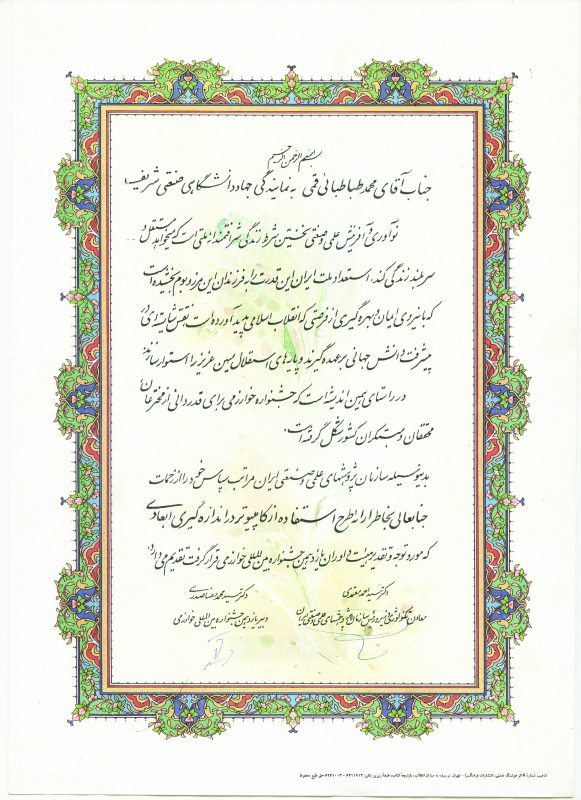 بسم الله الرحمن الرحیم
جناب آقای محمد طباطبائی قمی به نمایندگی جهاد دانشگاهی صنعتی شریف؛
نوآوری و آفرینش علمی و صنعتی نخستین شرط زندگی شرافتمندانه ملتی است که میخواهد مستقل و
سربلند زندگی کند، استعداد ملت ایران این قدرت را به فرزندان این مرز و بوم بخشیده است
که با نیروی ایمان و بهره گیری از فرصتی که انقلاب اسلامی پدید آورده است نقش شایسته ای در
پیشرفت دانش جهانی بر عهده گیرند و پایه های استقلال میهن عزیز را استوار سازند.
در راستای همین اندیشه است که جشنواره خوارزمی برای قدردانی از مخترعان
محققان و مبتکران کشور شکل گرفته است.
بدینوسیله سازمان پژوهشهای علمی و صنعتی ایران مراتب سپاس خود را از زحمات
جنابعالی بخاطر ارائه طرح استفاده از کامپیوتر در اندازه گیری ابعادی
که مورد توجه و تقدیر هیئت داوران یازدهمین جشنواره بین المللی خوارزمی قرار گرفت تقدیم می دارد.
دکتر سید محمدرضا صدری
دبیر یازدهمین جشنواره بین المللی خوارزمی
دکتر سید
معاون تکنولوژی و رئیس سازمان پژوهشهای علمی و صنعتی ایران